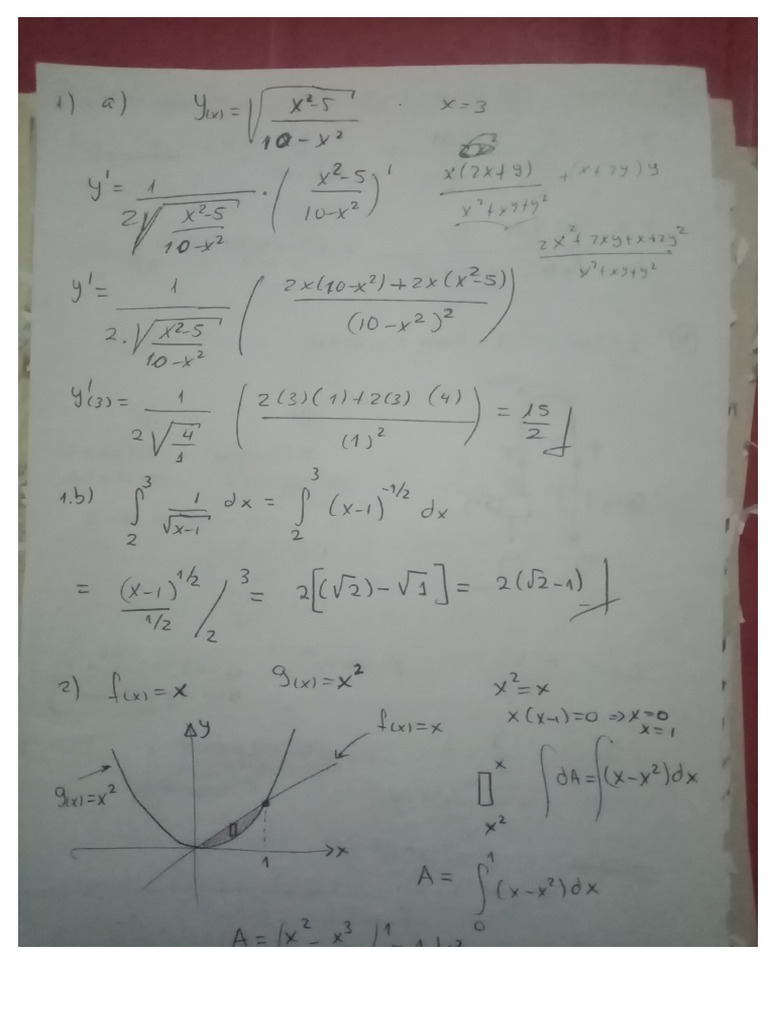 1) a) y(x) = √((x²-5)/(10-x²)) . x=3
y' = 1/(2√((x²-5)/(10-x²))) · ((x²-5)/(10-x²))'
x(2x+y)/(x²+xy+y²) + (x+2y)y
(2x²+2xy+x+2y²)/(x²+xy+y²)
y' = 1/(2·√((x²-5)/(10-x²))) ((2x(10-x²)+2x(x²-5))/(10-x²)²)
y'(3) = 1/(2√(4/1)) ((2(3)(1)+2(3)(4))/(1)²) = 15/2
1.b) ∫₂³ 1/√(x-1) dx = ∫₂³ (x-1)^(-1/2) dx
= (x-1)^(1/2)/(1/2) /₂³ = 2[(√2)-√1] = 2(√2-1)
2) f(x) = x g(x) = x² x² = x
x(x-1)=0 ⇒ x=0
x=1
y
f(x)=x
g(x)=x²
x
x²
∫dA = ∫(x-x²)dx
1
x
A = ∫₀¹ (x-x²)dx
A = (x² - x³